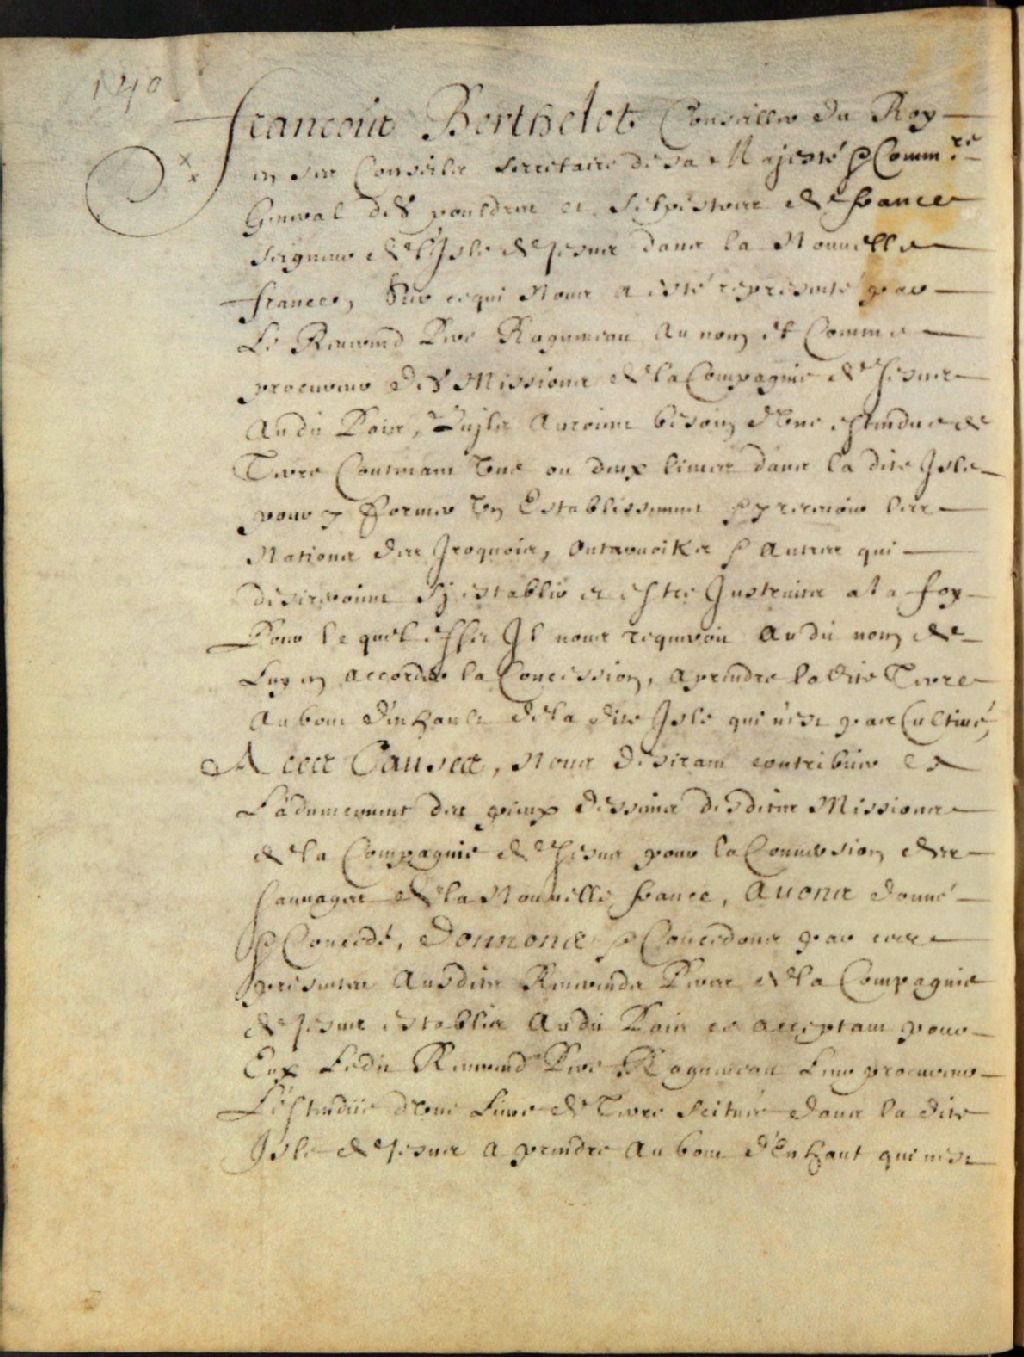 140
François Berthelot Conseiller du Roy
en ses Conseils secretaire de sa Majesté & Comm.re
General des pouldres et salpestres de france
seigneur de l'Isle de Jesus dans la Nouuelle
france, Sur ce qui Nous a esté representé par
Le Reuerend Pere Ragueneau au nom et Comme
procureur des Missions de la Compagnie de Jesus
Audit Païs, qu'jls auroient besoin d'vne estendue de
Terre Contenant vne ou deux lieues dans la dite Isle
pour y former vn Establissement & y receuoir les
Nations des Iroquois, & autres qui
desireroient s'y establir et estre Instruits a la foy
Pour lequel effet Il nous requeroit audit nom de
Luy en accorder la Concession, a prendre la dite Terre
Au bout d'en hault de la dite Isle qui n'est pas Cultiué,
A ces Causes, Nous desirant contribuer a
L'aduancement des pieux desseins desdites Missions
de la Compagnie de Jesus pour la Conuersion des
sauuages de la Nouuelle france, Auons donné
& Concedé, donnons & Concedons par ces
presentes Ausdits Reuerends Peres de la Compagnie
de Jesus establis audit Païs ce acceptant pour
Eux Ledit Reuerend Pere Ragueneau Leur procureur
L'estendüe d'vne Lieue de Terre scituée dans la dite
Isle de Jesus a prendre au bout d'en hault qui n'est